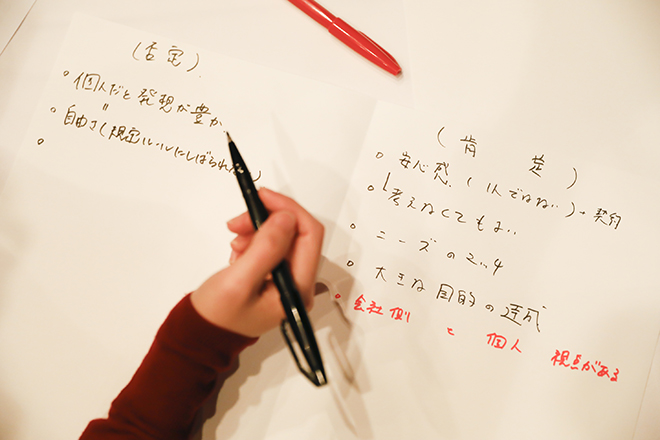 (否定)
・個人だと発想が豊か
〃
・自由さ(規定ルールにしばられない)
(肯定)
・安心感(1人ではない)→契約
・考えなくてもよい
・ニーズのマッチ
・大きな目的の達成
・会社側と個人 視点がある